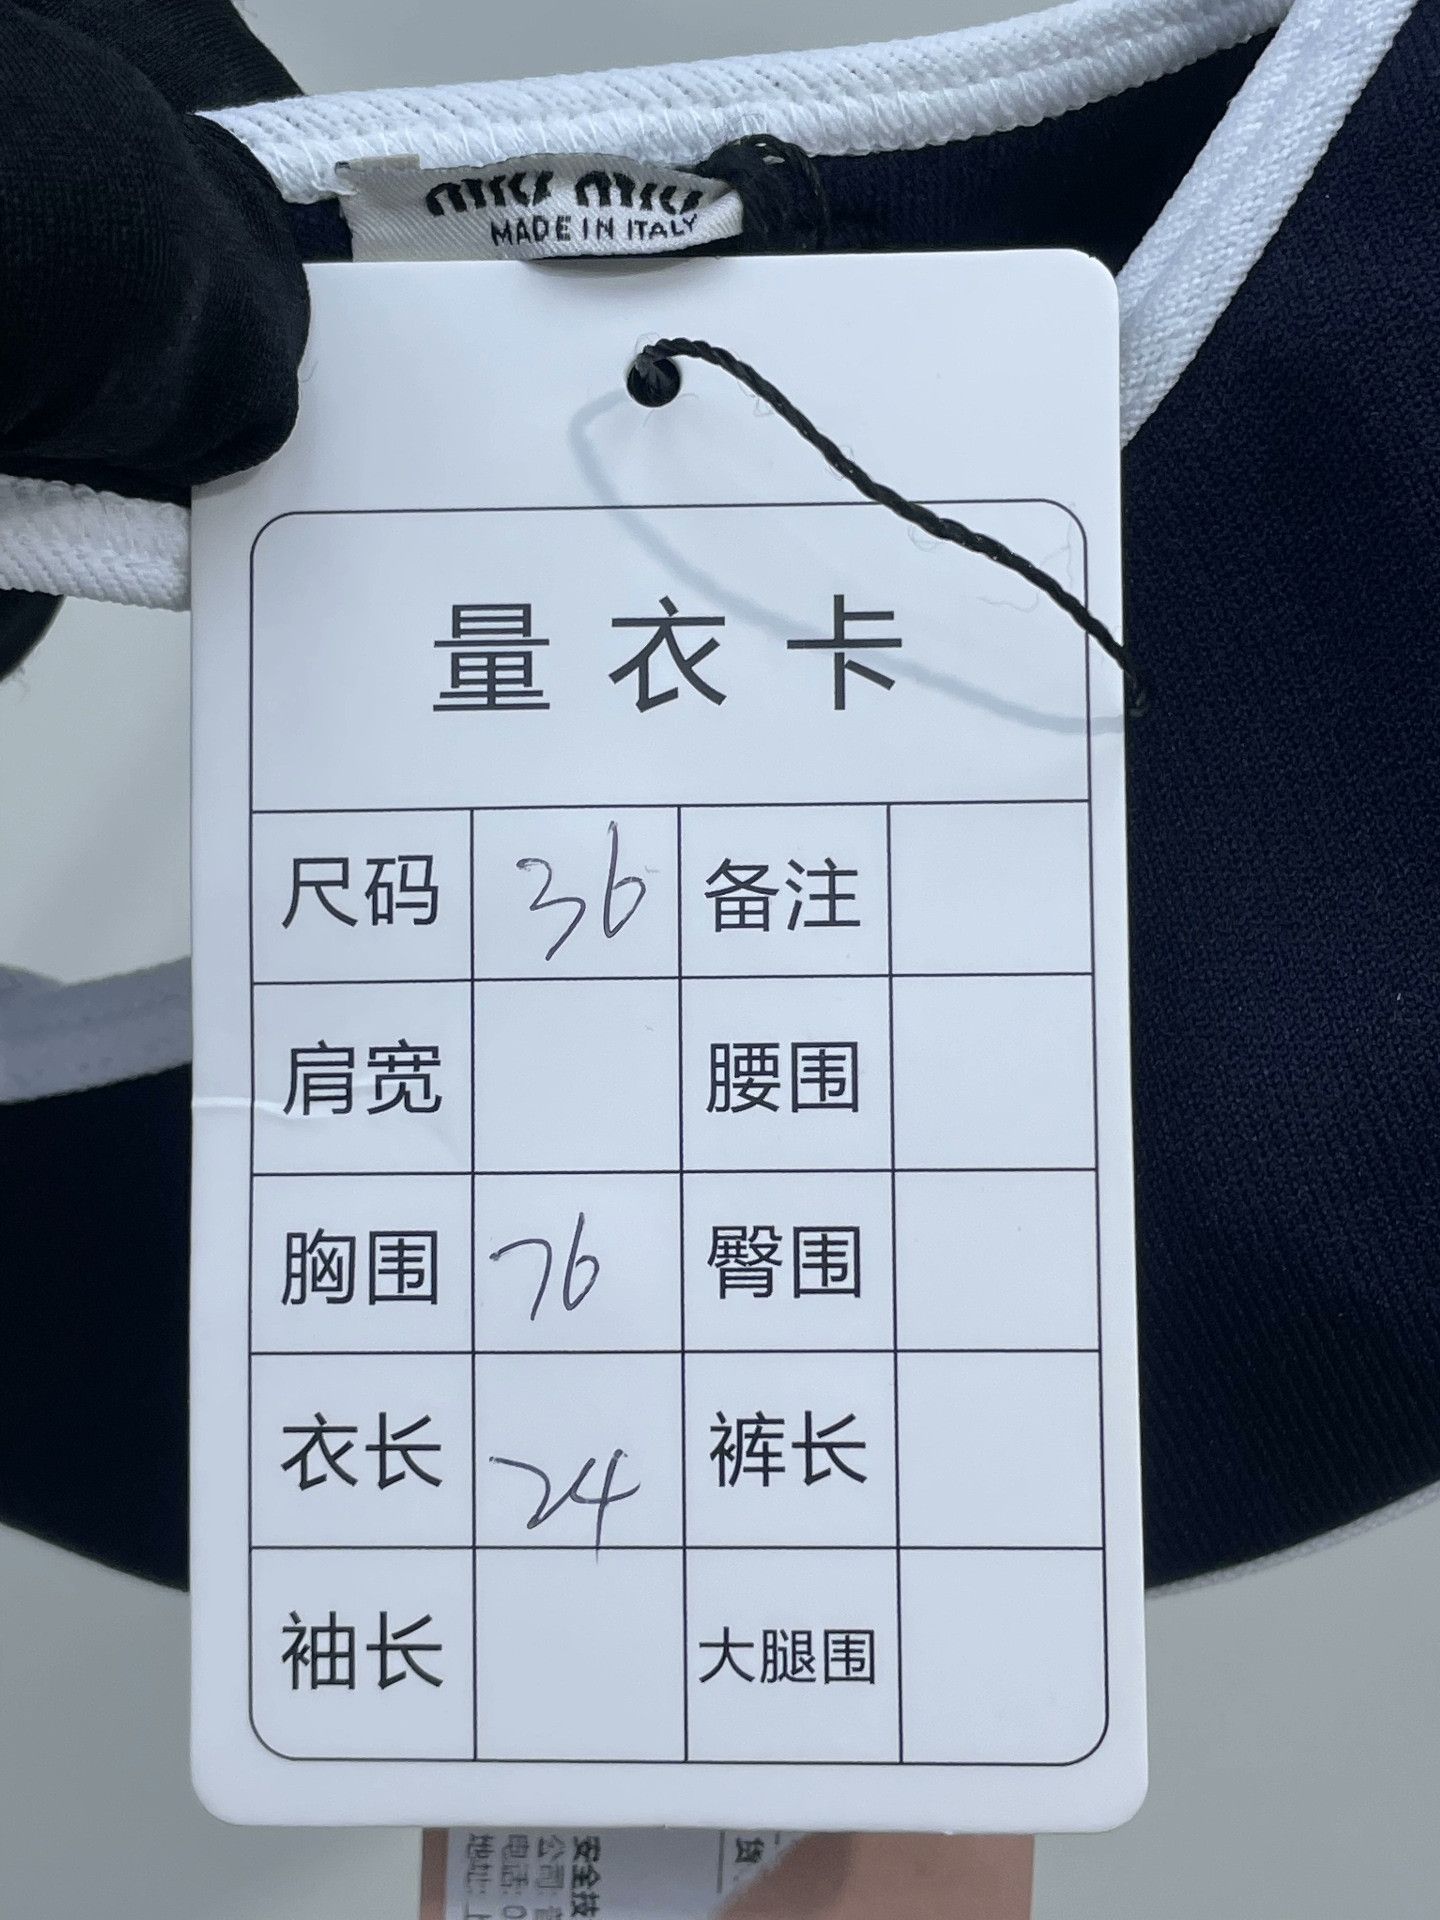 miu miu
MADE IN ITALY
量衣卡
尺码 36 备注
肩宽 腰围
胸围 76 臀围
衣长 24 裤长
袖长 大腿围
安全技
公司:
电话: 0
地址: 上